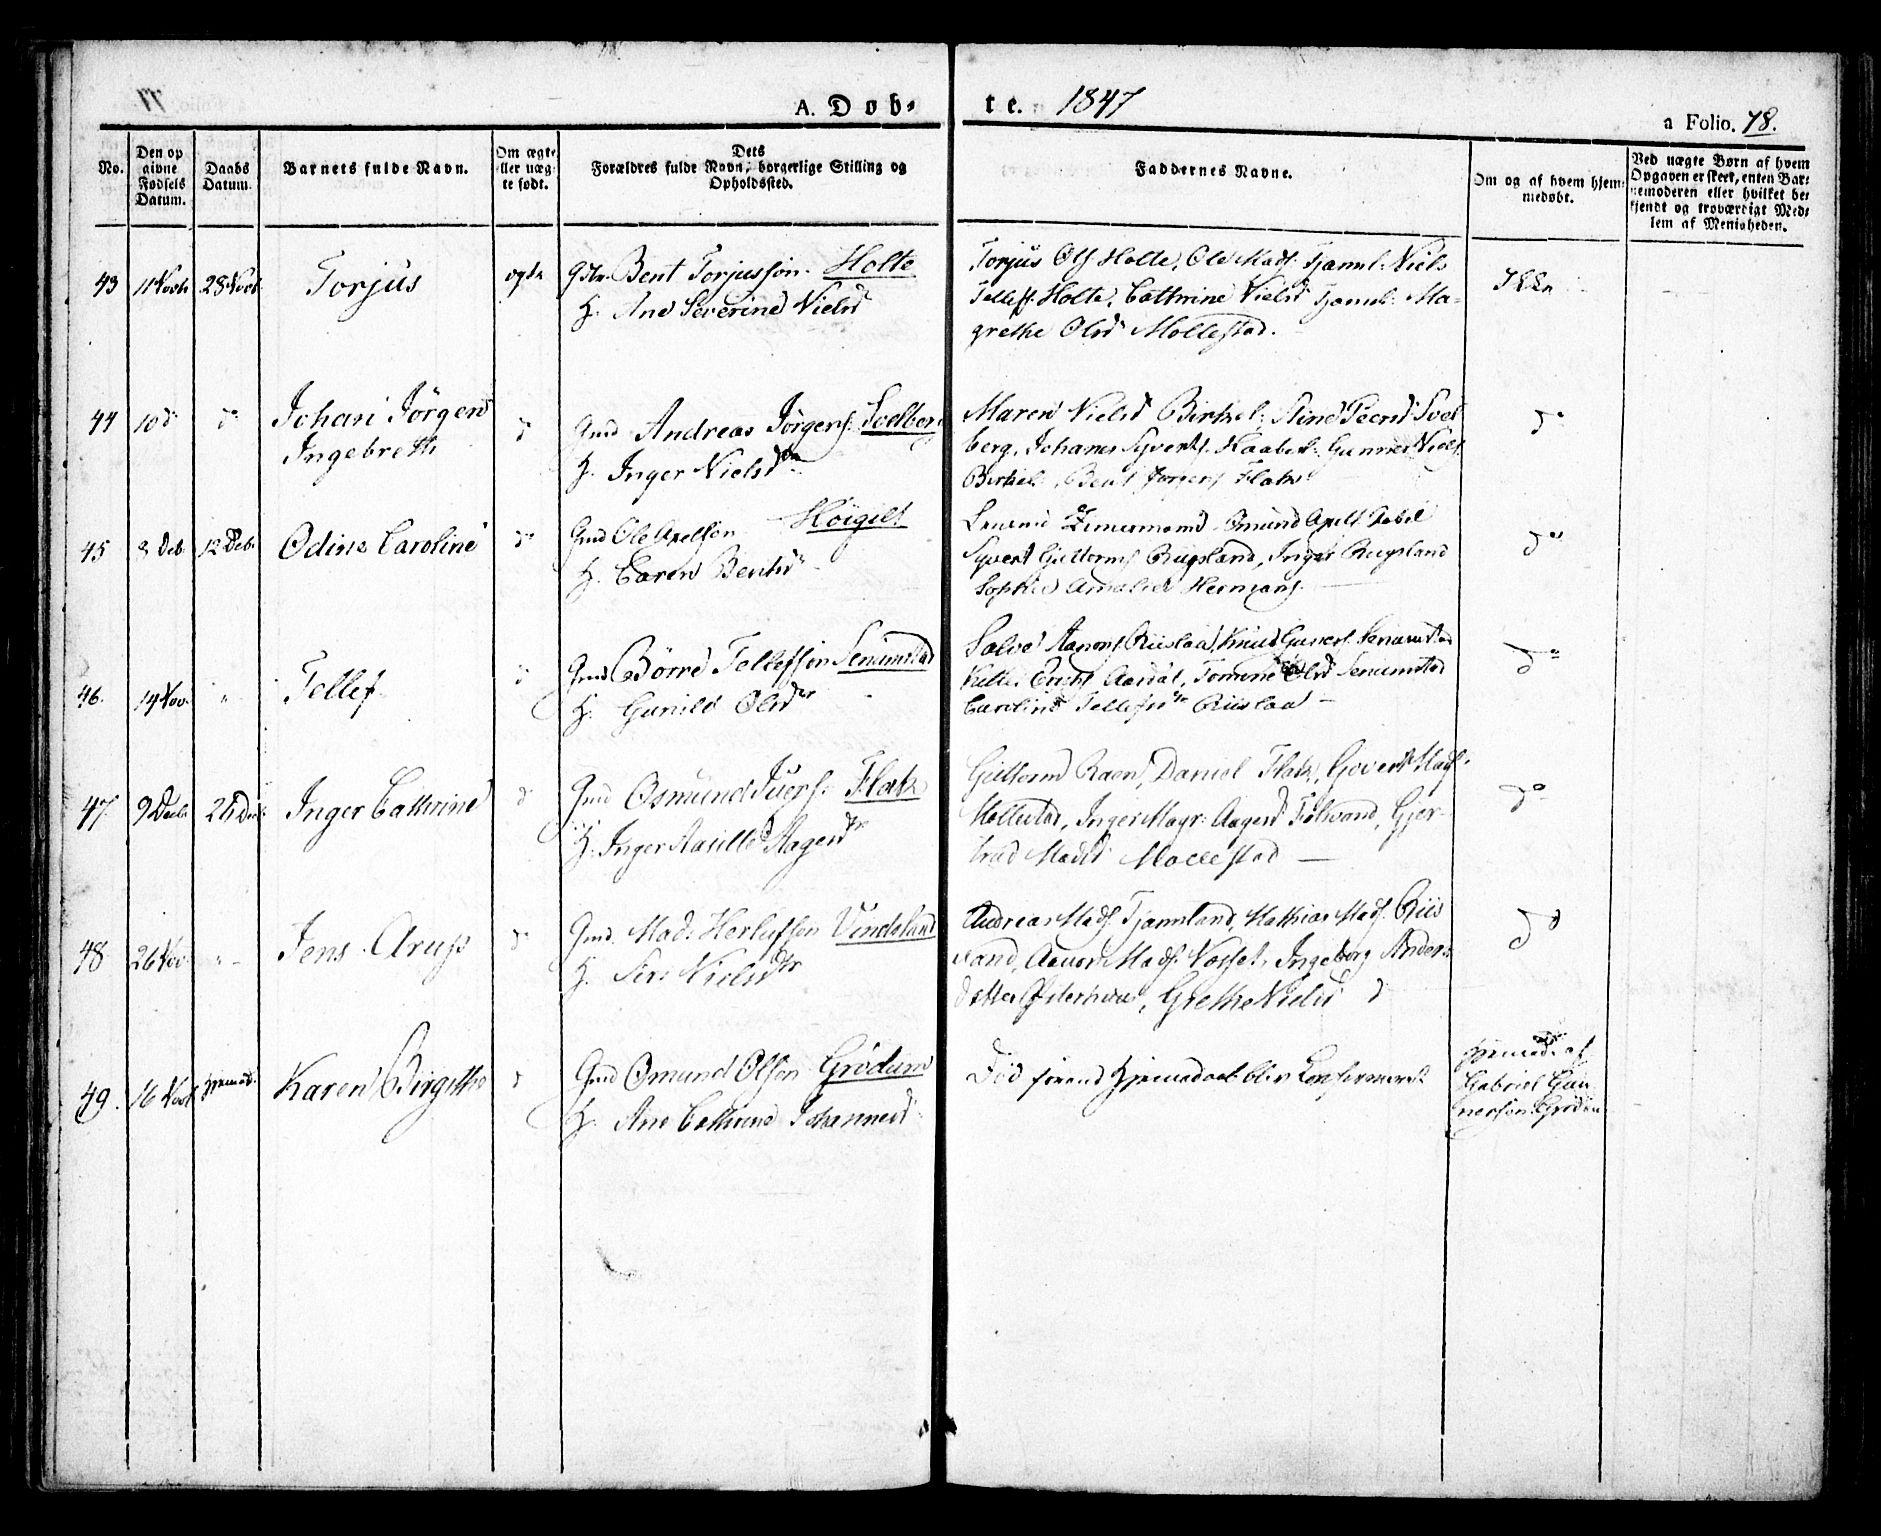 A. Døb-
te. 1847
a Folio. 78.
No.
Den op
givne
Fødsels
Datum.
Daabs
Datum.
Barnets fulde Navn.
Om ægte
eller uæg-
te født.
Dets
Forældres fulde Navn, borgerlige Stilling og
Opholdssted.
Faddernes Navne.
Om og af hvem hjem-
medøbt.
Ved uægte Børn af hvem
Opgaven er skeet, enten Bar-
nemoderen eller hvilket be-
kjendt og troværdigt Med-
lem af Menigheden.
43 11 Novb 28 Novb. Torjus ægte Bent Torjussøn. Holte
H. Ane Severine Nielsd
Torjus Ols Holte, Ole Mads. Tjomsl. Niels
Tellefs. Holte, Cathrine Nielsd Tjomsl. Ma-
grethe Olsd Mollestad.
Ikke
44 10 d d Johan Jørgen
Ingebreth
d Gmd Andreas Jørgens. Svelberg
H. Inger Nielsdr
Maren Nielsd Birkel. Stine Peersd Svel
berg, Johannes Syverts. Haabest. Gunner Niels.
Birkel. Bent Jørgens Flake
do
45 8 Deb 12 Deb. Odine Caroline do Gmd Ole Axelson Høigilt
H. Caren Bentsdr
Zimermand Omund Axels
Syvert Guttorms Rugsland, Inger Rugsland
Sophie Amalie Hermans.
do
46. 14 Nov. " Tellef d Gmd Børre Tellefsøn Senumstad
H. Gunild Olsdr
Salve Aanons Riislaa, Knud Guners. Senumstad
Erichs Aardal, Tomine Olsd Senumstad
Caroline Tellefsdr Riislaa
do
47. 9 Decb 26 Decb Inger Cathrine d Gmd Osmund Ivers. Flak
H. Inger Aasille Aagesdr
Guttorm Raen, Daniel Flak, Govert Mads.
Mollestad, Inger Magr. Aagesd Følvand, Gjer-
trud Madsd Mollestad
do
48 26 Nov " Jens Arup do Gmd. Mads Herlufsøn Vindsland
H. Siri Nielsdr
Andreas Mads. Tjomsland, Mathias Mads. Riis
land, Aanon Mads. Vasset, Ingeborg Anders
datter Østerhuus, Grethe Nielsd d
do
49. 16 Novb hjemmed. Karen Birgitte d Gmd Omund Olsøn Grødum
H. Ane Cathrine Johannesd
Død førend Hjemmedaaben blev Confirmeret
hjemmed. af
Gabriel Gun
nersøn Grødum